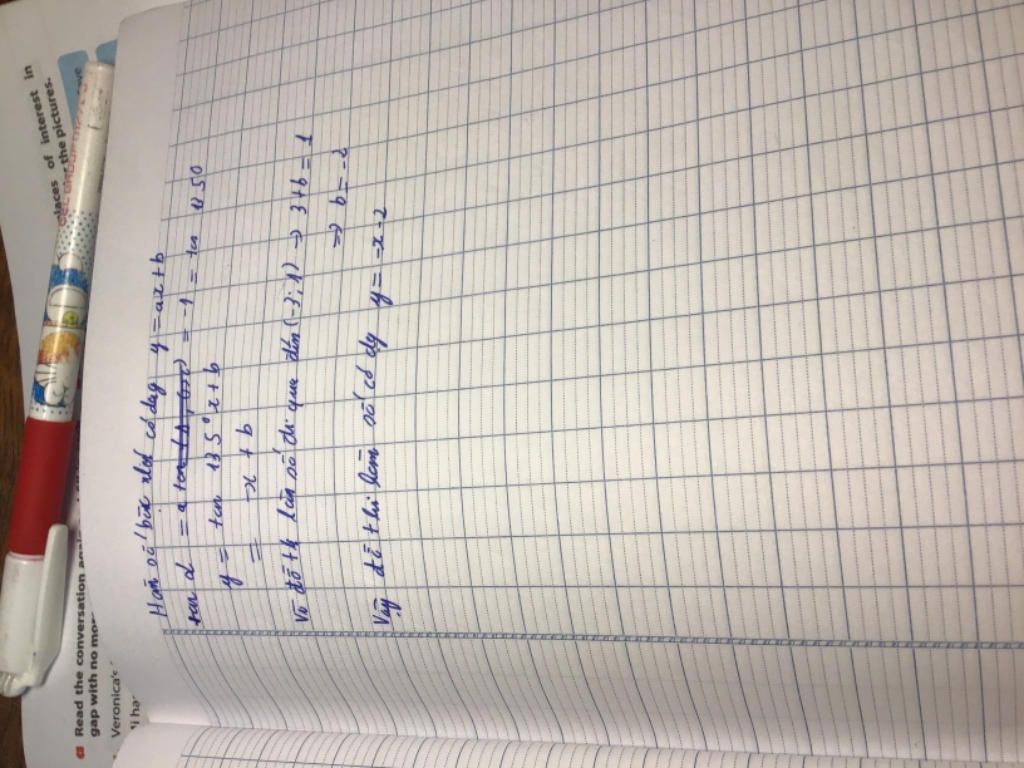 Hàm số bậc nhất có dạg y = ax + b
tan α = a = -1 = tan
y = tan 135° x + b
= -x + b
Vì đồ thị hàm số đi qua điểm (-3; 1) → 3 + b = 1
⇒ b = -2
Vậy đồ thị hàm số có dg y = -x - 2
Read the conversation
gap with no more
Veronica's
places of interest in
the pictures.